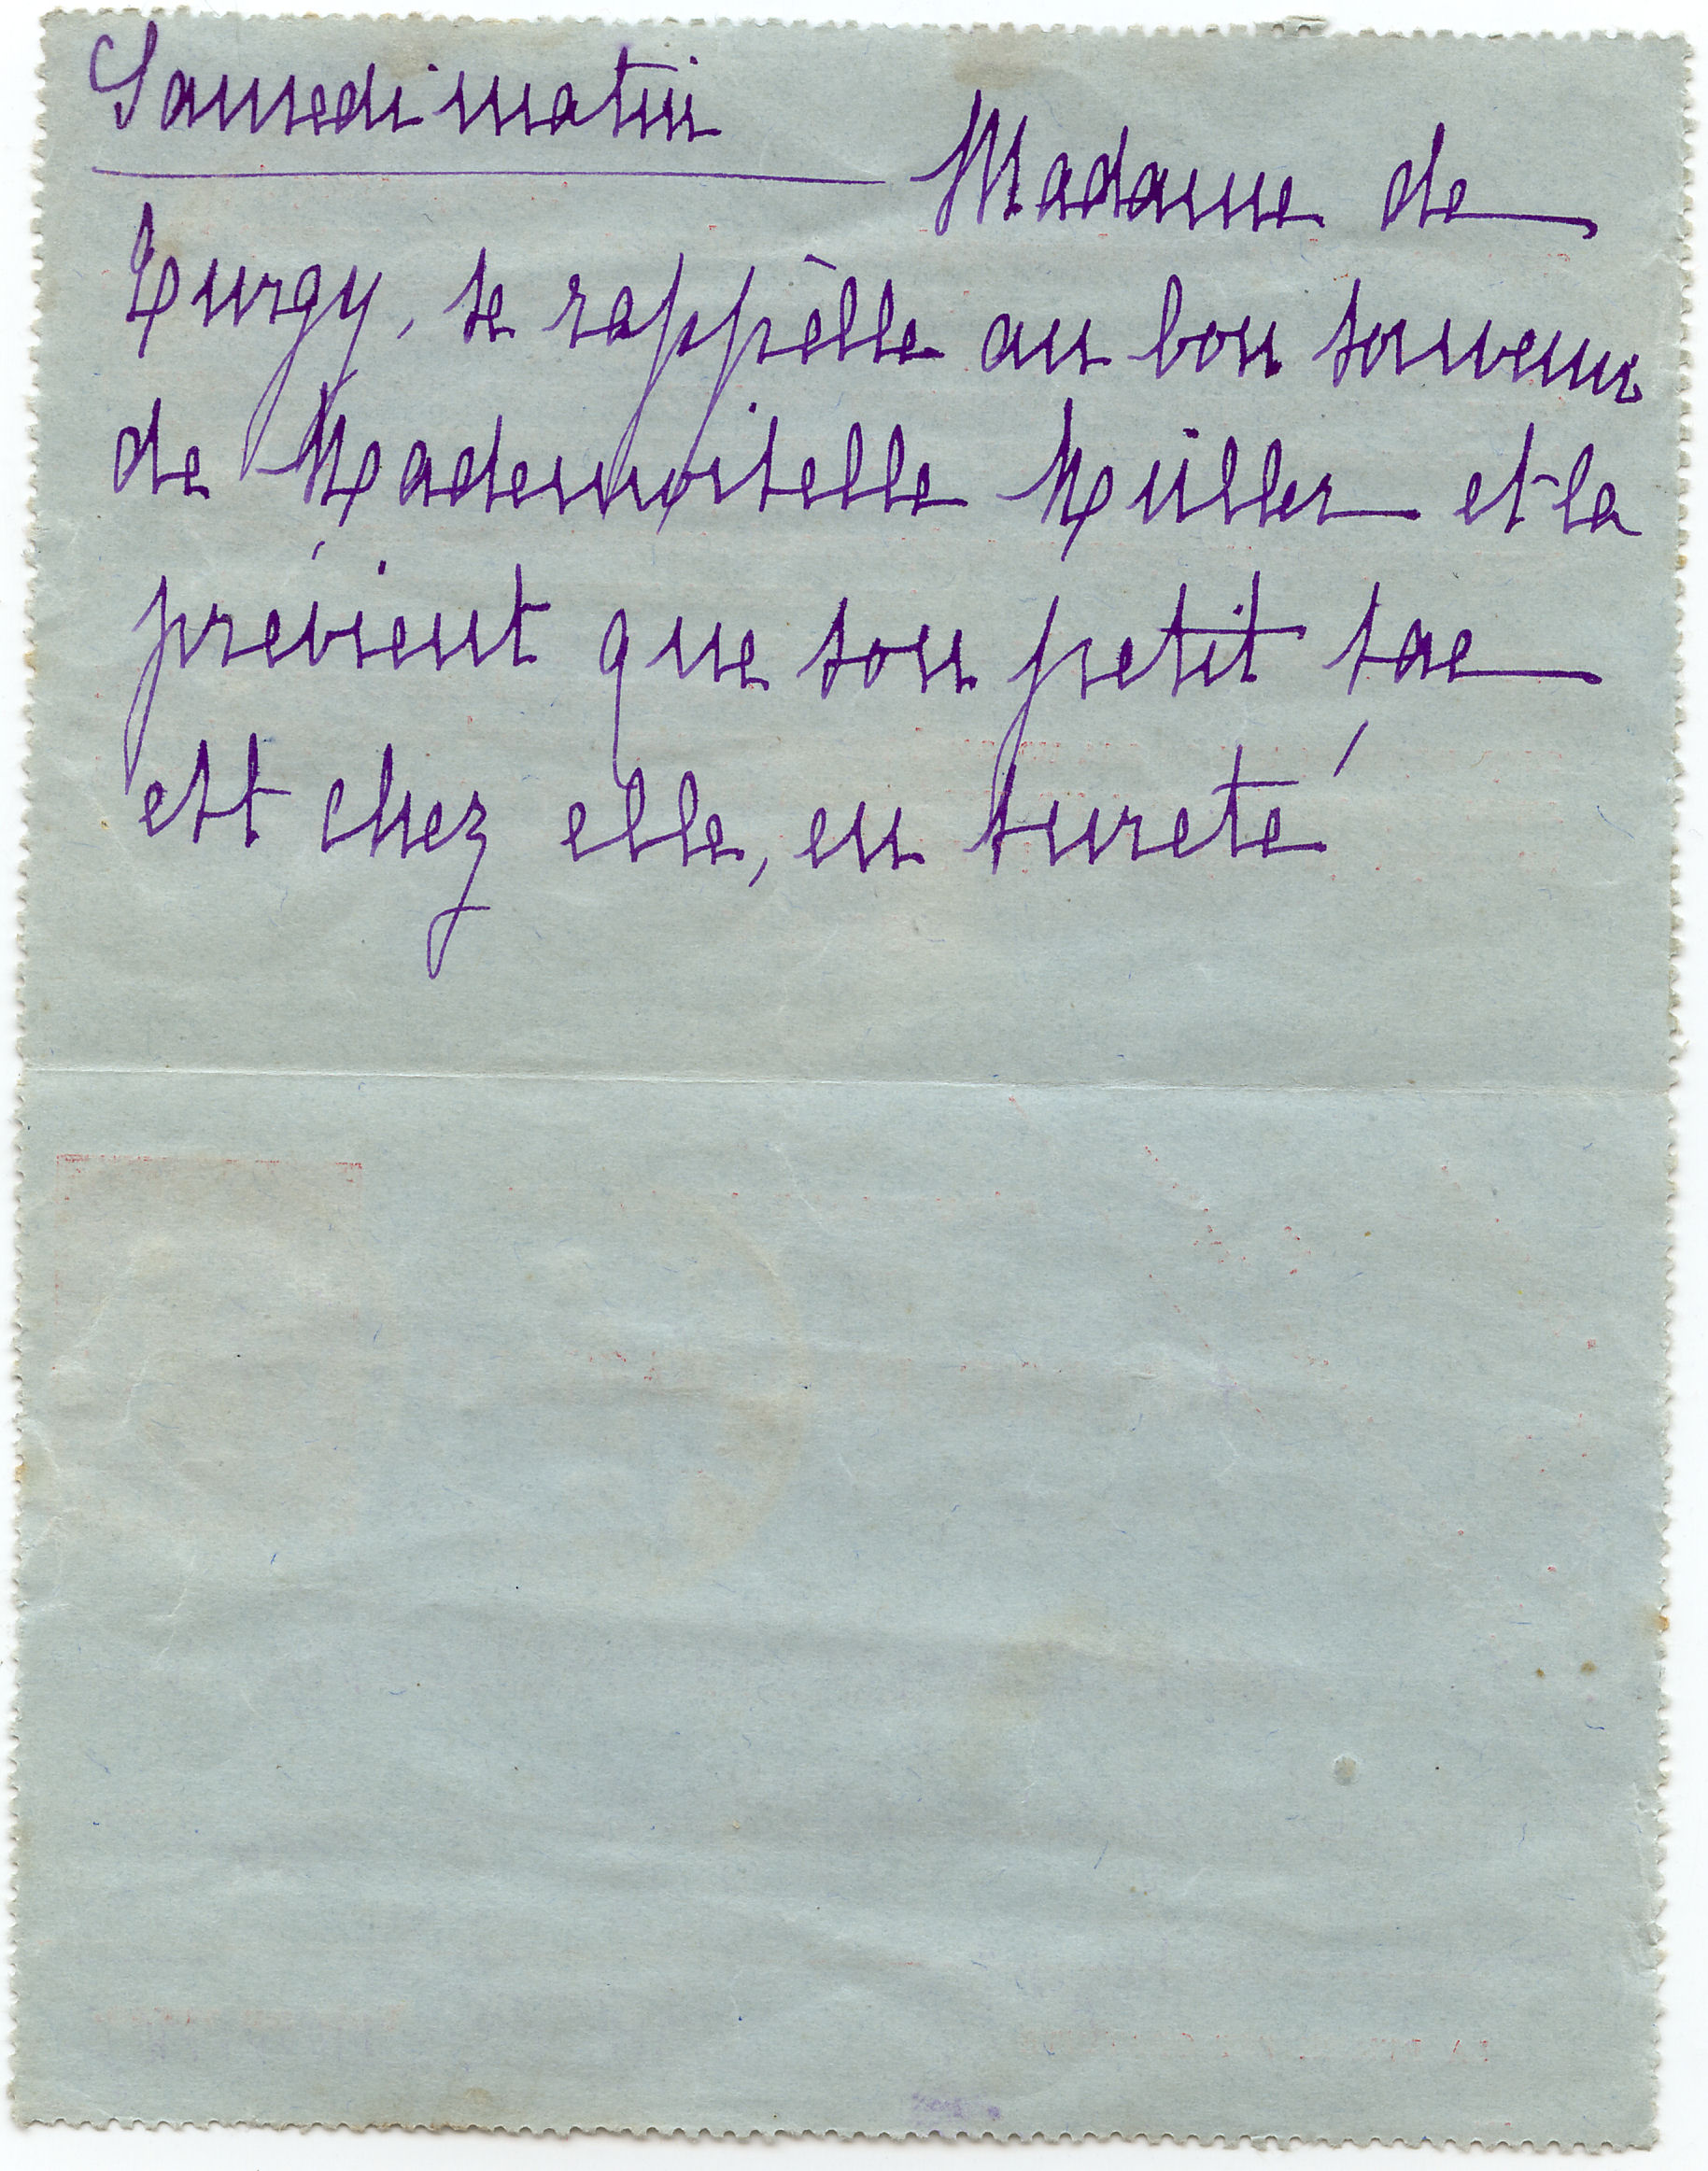 Samedi matin
Madame de
Turgy, se rappèlle au bon souvenir
de Mademoiselle Müller et la
prévient que son petit sac
est chez elle, en sureté